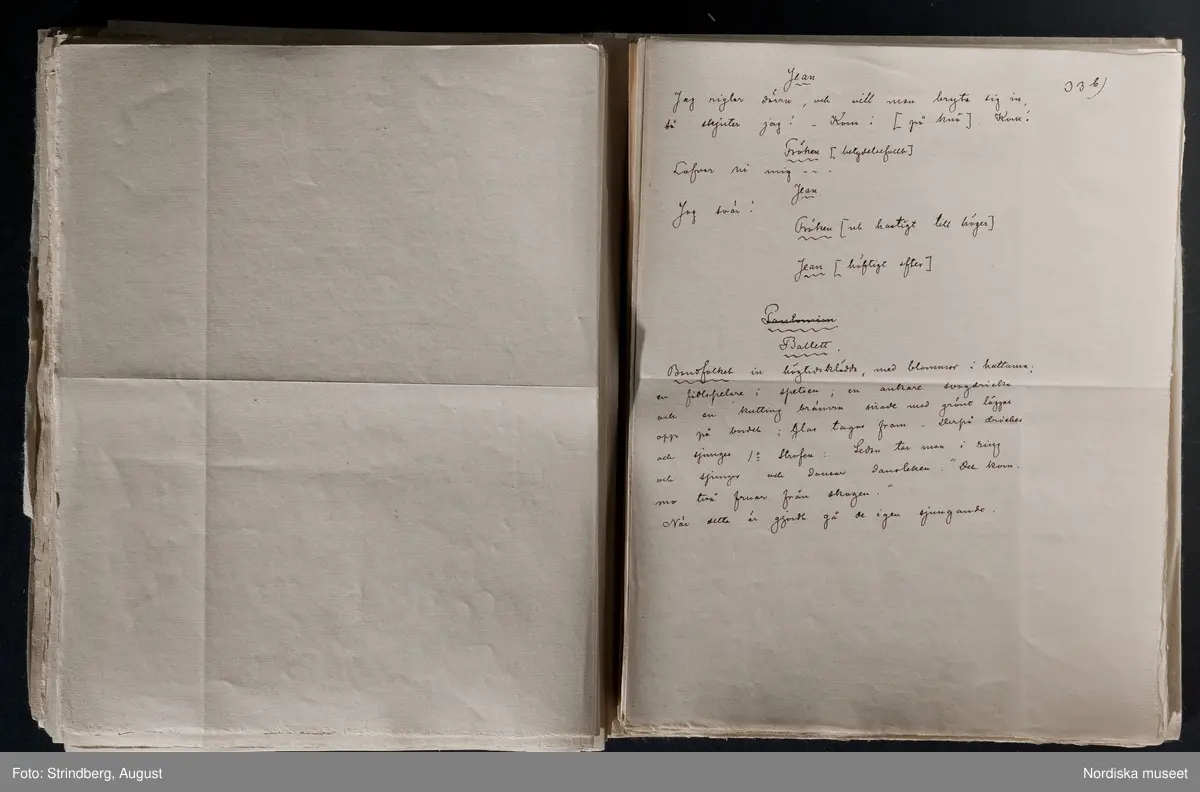 33 b)
Jean
Jag riglar dörrn, och vill man bryta sig in,
så skjuter jag! – Kom! [på knä]. Kom!
Fröken [betydelsefullt]
Lofvar ni mig - - -
Jean
Jag svär!
Fröken [ut hastigt till höger]
Jean [häftigt efter]
Pantomim
Ballett.
Bondfolket in högtidsklädda, med blommor i hattarna;
en fiolspelare i spetsen; en ankare svagdricka
och en kutting brännvin sirade med grönt läggas
opp på bordet; Glas tages fram. Derpå drickes
och sjunges 1a Strofen: Sedan tar man i ring
och sjunger och dansar dansleken: "Det kom-
mo två fruar från skogen."
När detta är gjordt gå de igen sjungande.
Foto: Strindberg, August
Nordiska museet